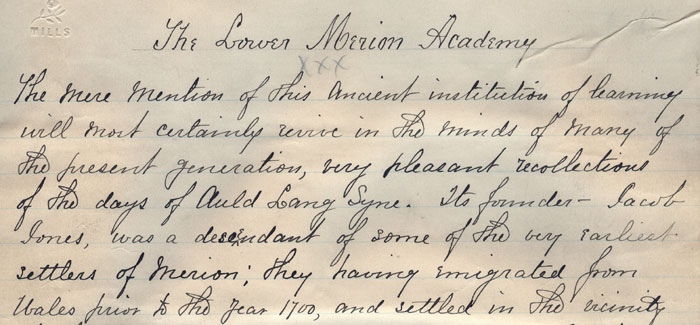 MILLS
The Lower Merion Academy
XXX
The mere mention of this ancient institution of learning
will most certainly revive in the minds of many of
the present generation, very pleasant recollections
of the days of Auld Lang Syne. Its founder - Jacob
Jones, was a descendant of some of the very earliest
settlers of Merion; they having emigrated from
Wales prior to the year 1700, and settled in the vicinity